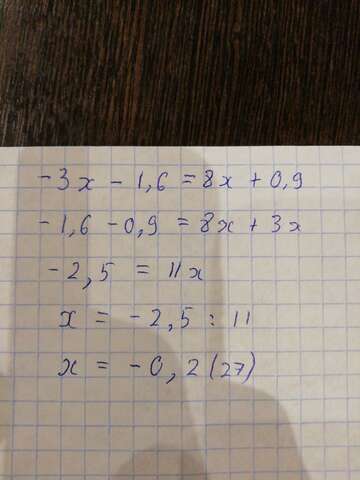 -3x - 1,6 = 8x + 0,9
-1,6 - 0,9 = 8x + 3x
-2,5 = 11x
x = -2,5 : 11
x = -0,2(27)